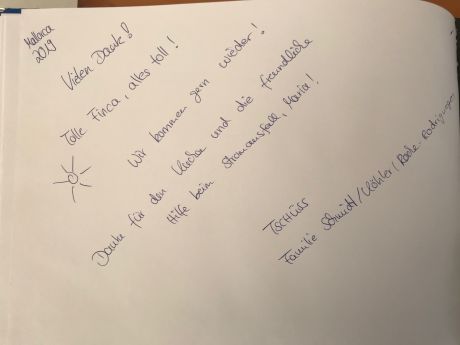 Mallorca
2019
Vielen Dank!
Tolle Finca, alles toll!
Wir kommen gern wieder!
Danke für den Kuchen und die freundliche
Hilfe beim Stromausfall, Maria!
Tschüss
Familie Schmidt/Köhler/Bode-Rodriguez